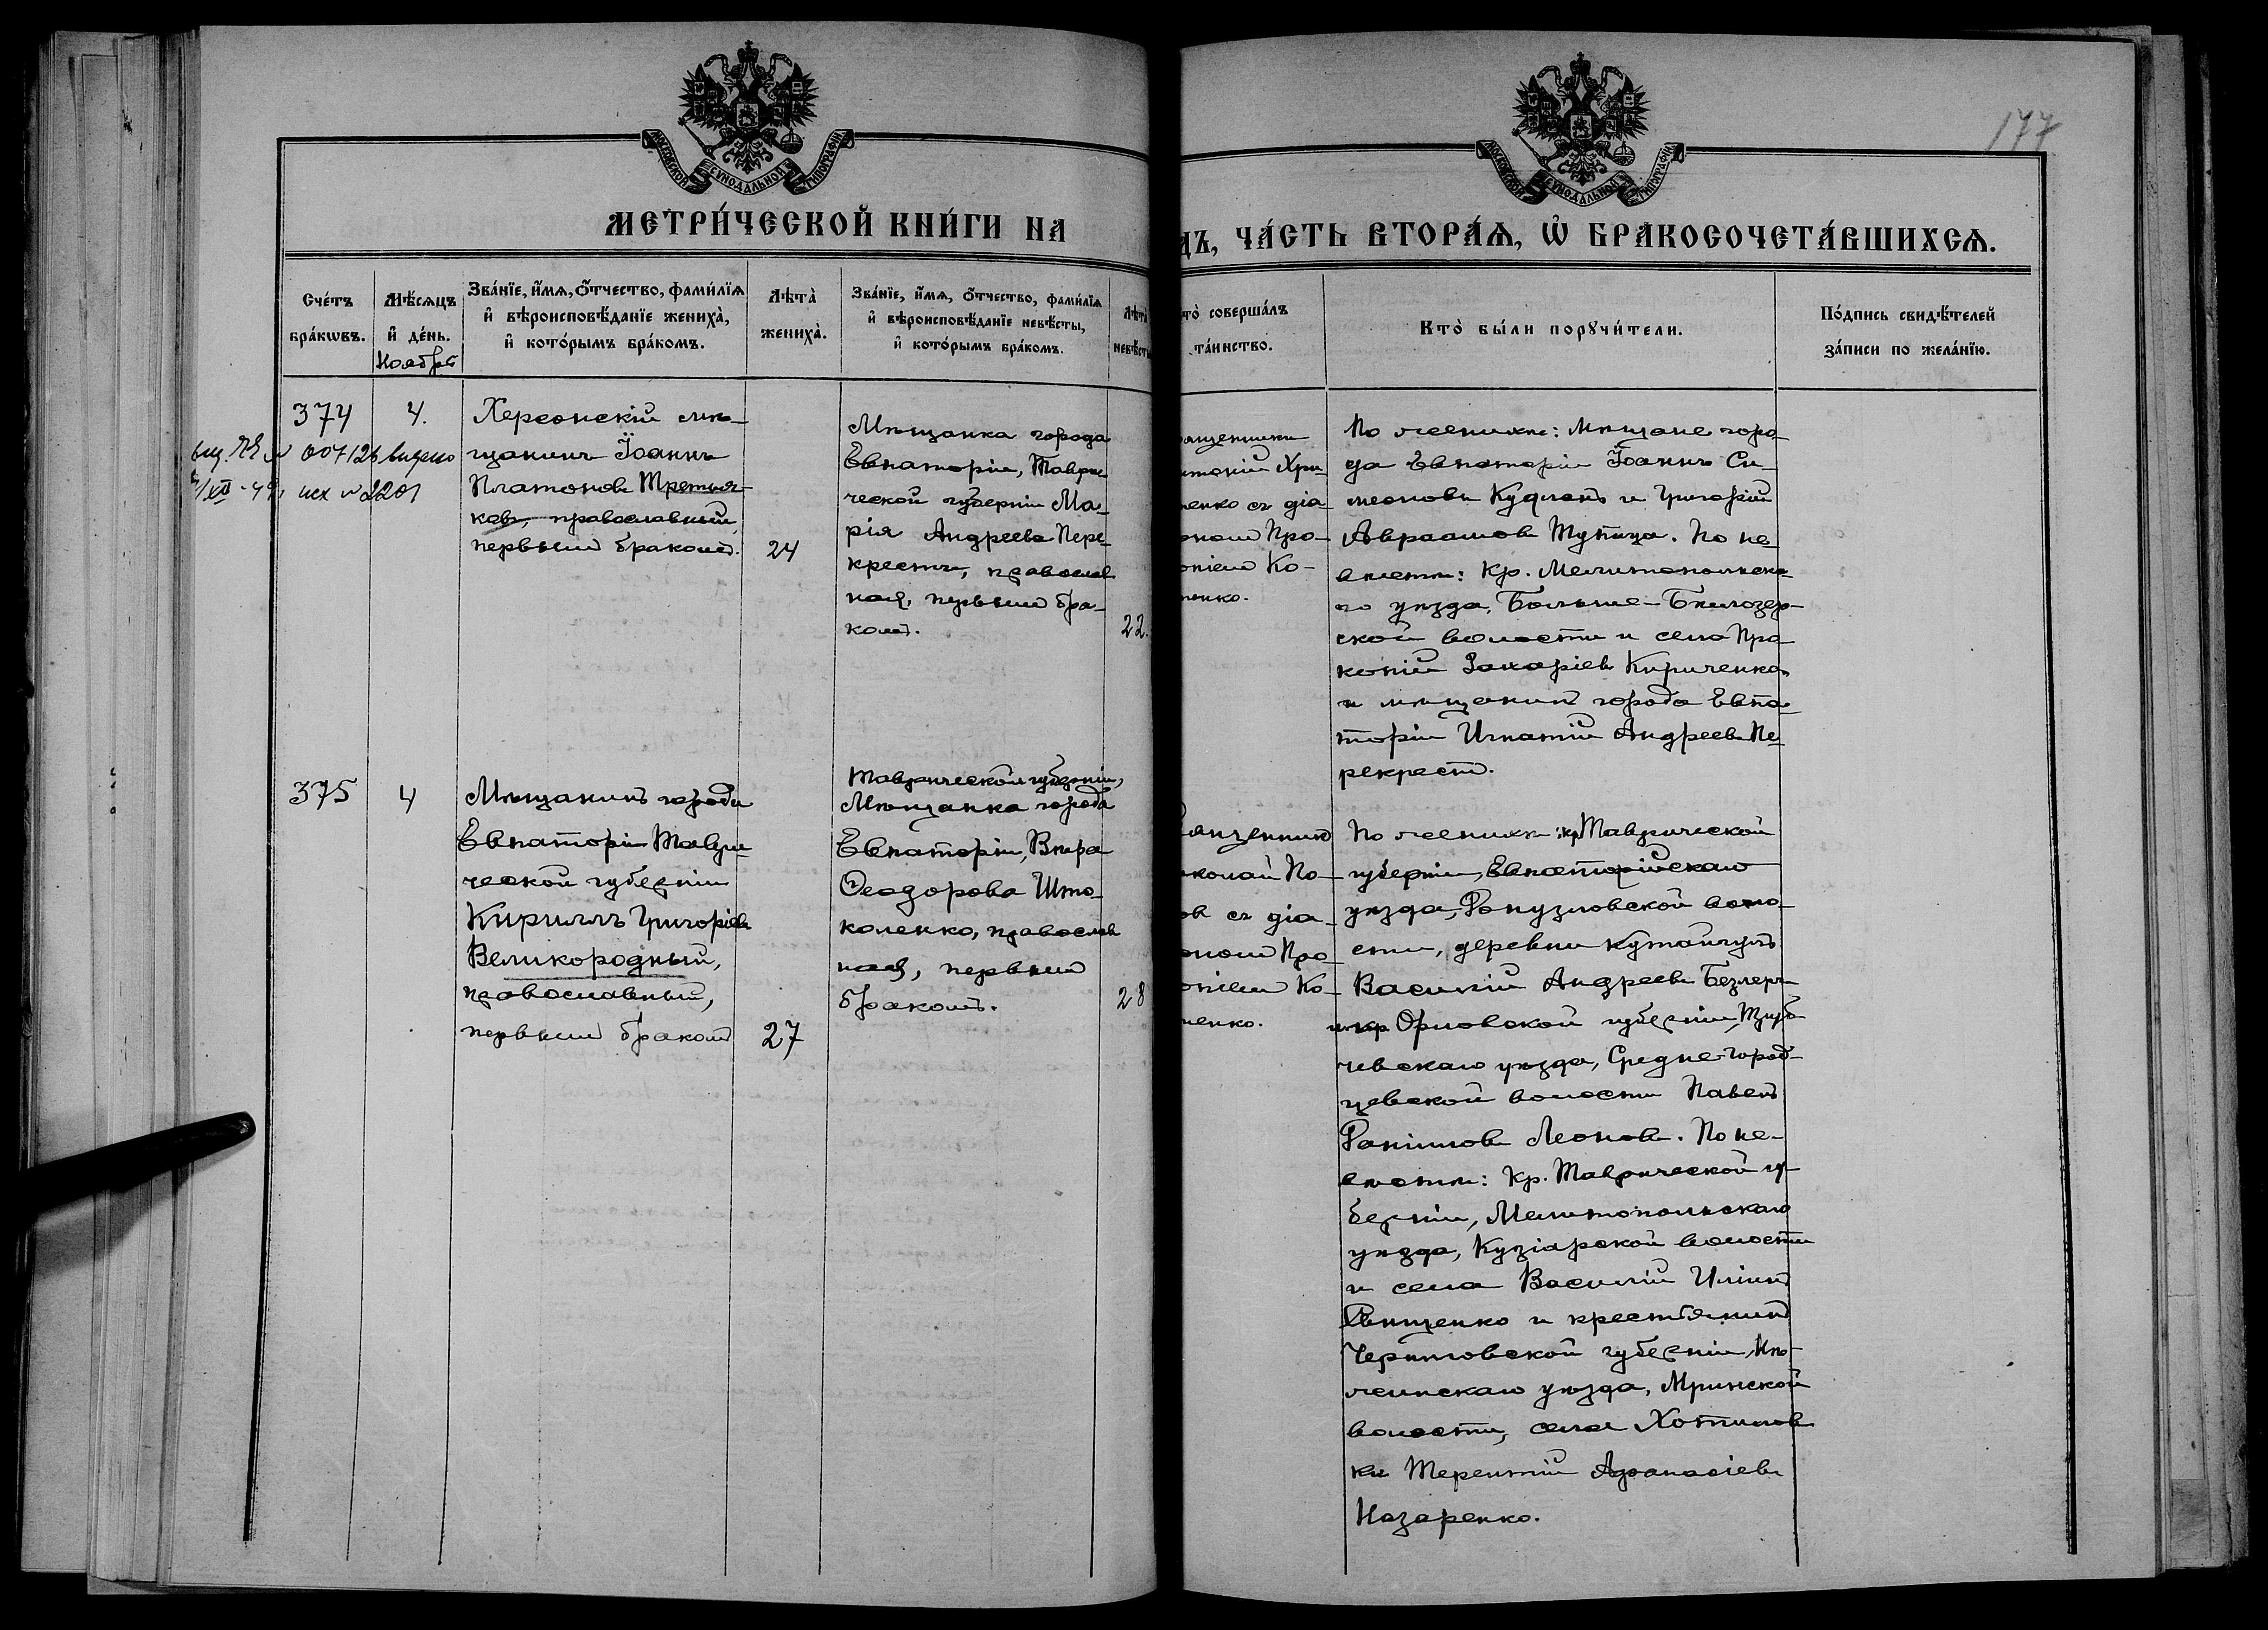 177
МОСКОВСКОЙ СѴНОДАЛЬНОЙ ТИПОГРАФІИ
МОСКОВСКОЙ СѴНОДАЛЬНОЙ ТИПОГРАФІИ
МЕТРИ́ЧЕСКОЙ КНИ́ГИ НА
ДЪ, ЧА́СТЬ ВТОРА́Ѧ, Ѡ҆ БРАКОСОЧЕТА́ВШИХСѦ.
Сче́тъ
бра́кѡвъ.
Мѣ́сѧцъ
и҆ де́нь.
Ноября
Зва́нїе, и҆́мѧ, ѻ҆́тчество, фами́лїѧ
и҆ вѣроисповѣ́данїе жениха̀,
и҆ кото́рымъ бра́комъ.
Лѣта̀
жениха̀.
Зва́нїе, и҆́мѧ, ѻ҆́тчество, фами́лїѧ
и҆ вѣроисповѣ́данїе невѣ́сты,
и҆ кото́рымъ бра́комъ.
Лѣта
невѣсты
то̀ соверша́лъ
та́инство.
Кто̀ бы́ли порꙋчи́тели.
По́дпись свидѣ́телей
за́писи по жела́нїю.
374
4.
007126 выдано
исх № 2201
Херсонскій мѣ-
щанинъ Іоаннъ
Платоновъ Третья-
ковъ, православный,
первымъ бракомъ.
24
Мѣщанка города
Евпаторіи, Таври-
ческой губерніи Ма-
рія Андреева Пере-
крестъ, православ
ная, первымъ бра-
комъ.
22.
ященникъ
нтоній Хри-
ненко съ діа-
ономъ Про-
опіемъ Ко-
ненко.
По женихѣ: Мѣщане горо-
да Евпаторіи Іоаннъ Си-
меоновъ Куфлатъ и Григорій
Авраамовъ Тупица. По не-
вѣстѣ: Кр. Мелитопольска-
го уѣзда, Больше-Бѣлозер-
ской волости и села Про-
копій Захаріевъ Кириченко
и мѣщанинъ города Евпа-
торіи Игнатій Андреевъ Пе-
рекрестъ.
375
4
Мѣщанинъ города
Евпаторіи Таври-
ческой губерніи
Кириллъ Григоріевъ
Великородный,
православный,
первымъ бракомъ
27
Таврической губерніи,
Мѣщанка города
Евпаторіи, Вѣра
Ѳеодорова Што-
коленко, православ
ная, первымъ
бракомъ.
28
вященникъ
иколай По-
овъ съ діа-
ономъ Про-
опіемъ Ко-
ненко.
По женихѣ: кр. Таврической
губерніи, Евпаторійскаго
уѣзда, волo-
сти, деревни
Василій Андреевъ
и кр. Орловской губерніи, Труб-
чевскаго уѣзда, Средне-Город-
цевской волости Павелъ
Леоновъ. По не-
вѣстѣ: Кр. Таврической гу-
берніи, Мелитопольскаго
уѣзда, волости
и села Василій Иліинъ
и крестьянинъ
Черниговской губерніи, Нѣ-
жинскаго уѣзда, Мринской
волости, села Хотинов-
ки Терентій Аѳанасіевъ
Назаренко.